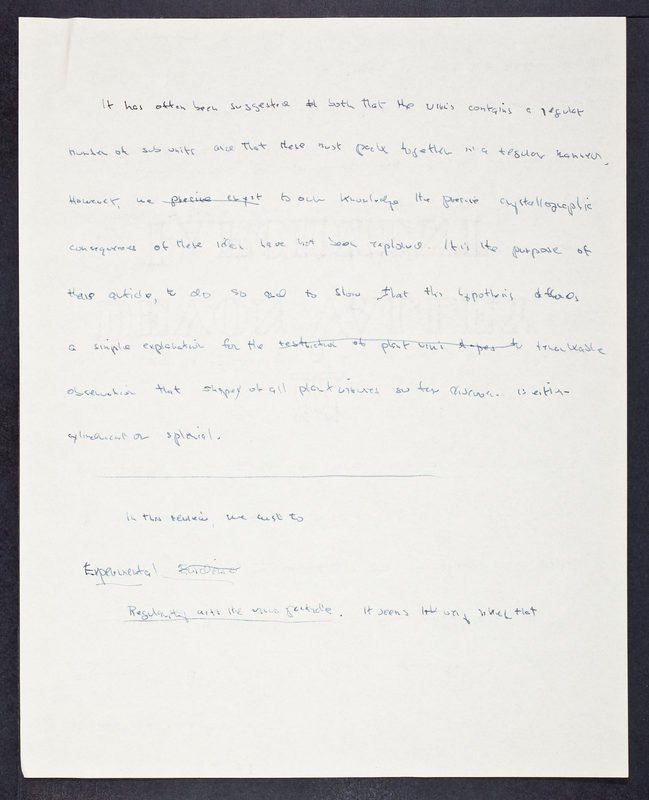 It has often been suggested both that the virus contains a regular
number of sub units and that these must pack together in a regular manner.
However, we precise cryst to our knowledge the precise crystallographic
consequences of these idea have not been explored. It is the purpose of
this article, to do so and to show that this hypothesis affords
a simple explanation for the restriction of plant virus shapes to remarkable
observation that shapes of all plant viruses so far discover. is either
cylindrical or spherical.
In this review, we wish to
Experimental Evidence
Regularity with the virus particle. It seems very likely that